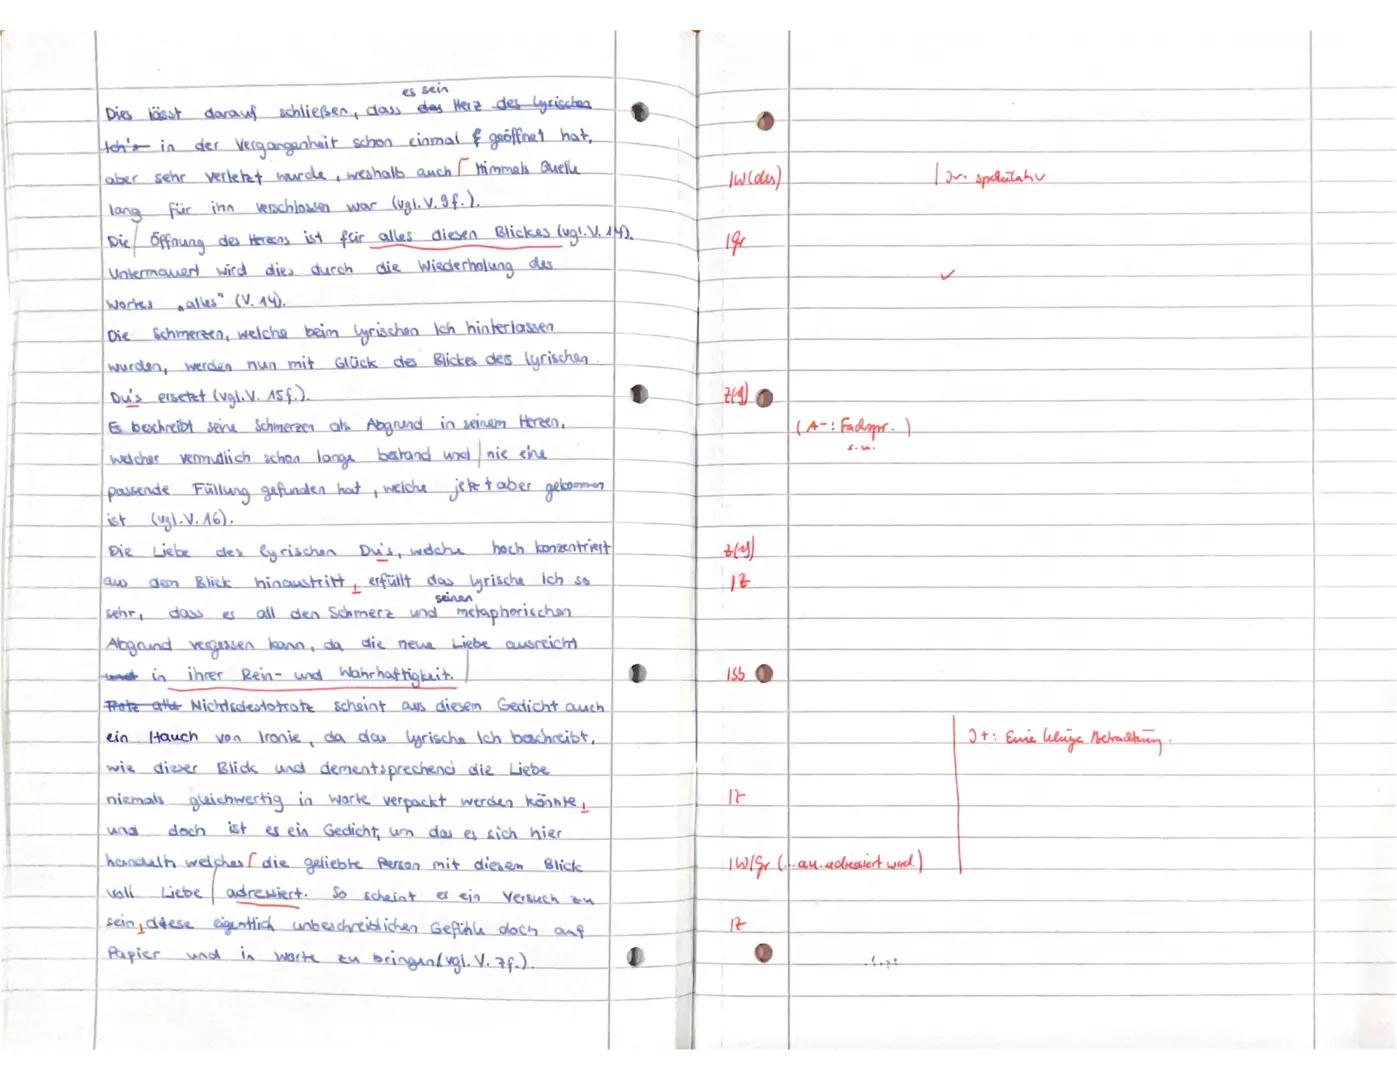 es sein
Dies lässt darauf schließen, dass das Herz des lyrischen
Ich's in der Vergangenheit schon einmal geöffnet hat,
aber sehr verletzt wurde, weshalb auch Himmels Quelle
lang für ihn verschlossen war (vgl. V. 9f.).
Die Öffnung des Herzens ist für alles diesen Blickes (vgl. V. 14).
Untermauert wird dies durch die Wiederholung des
Wortes „alles" (V. 14).
Die Schmerzen, welche beim lyrischen Ich hinterlassen
wurden, werden nun mit Glück des Blickes des lyrischen
Du's ersetzt (vgl. V. 15f.).
Es beschreibt seine Schmerzen als Abgrund in seinem Herzen,
welcher vermutlich schon lange bestand und nie eine
passende Füllung gefunden hat, welche jetzt aber gekommen
ist (vgl. V. 16).
Die Liebe des lyrischen Du's, welche hoch konzentriert
aus dem Blick hinaustritt, erfüllt das lyrische Ich so
seinen
sehr, dass es all den Schmerz und metaphorischen
Abgrund vergessen kann, da die neue Liebe ausreicht
und in ihrer Rein- und Wahrhaftigkeit.
Trotz alle Nichtsdestotrotz scheint aus diesem Gedicht auch
ein Hauch von Ironie, da das lyrische Ich beschreibt,
wie dieser Blick und dementsprechend die Liebe
niemals gleichwertig in Worte verpackt werden könnte,
und doch ist es ein Gedicht, um das es sich hier
handelt, welches die geliebte Person mit diesem Blick
voll Liebe adressiert. So scheint es ein Versuch zu
sein, diese eigentlich unbeschreiblichen Gefühle doch auf
Papier und in Worte zu bringen (vgl. V. 7f.).
IW (des)
J-: spekulativ
Igr
✓
Z(y)
(A-: Fachspr.)
s.o.
Z(y)
IZ
ISb
J+: Eine kluge Betrachtung.
IZ
IW/Gr (... an adressiert wird)
IZ